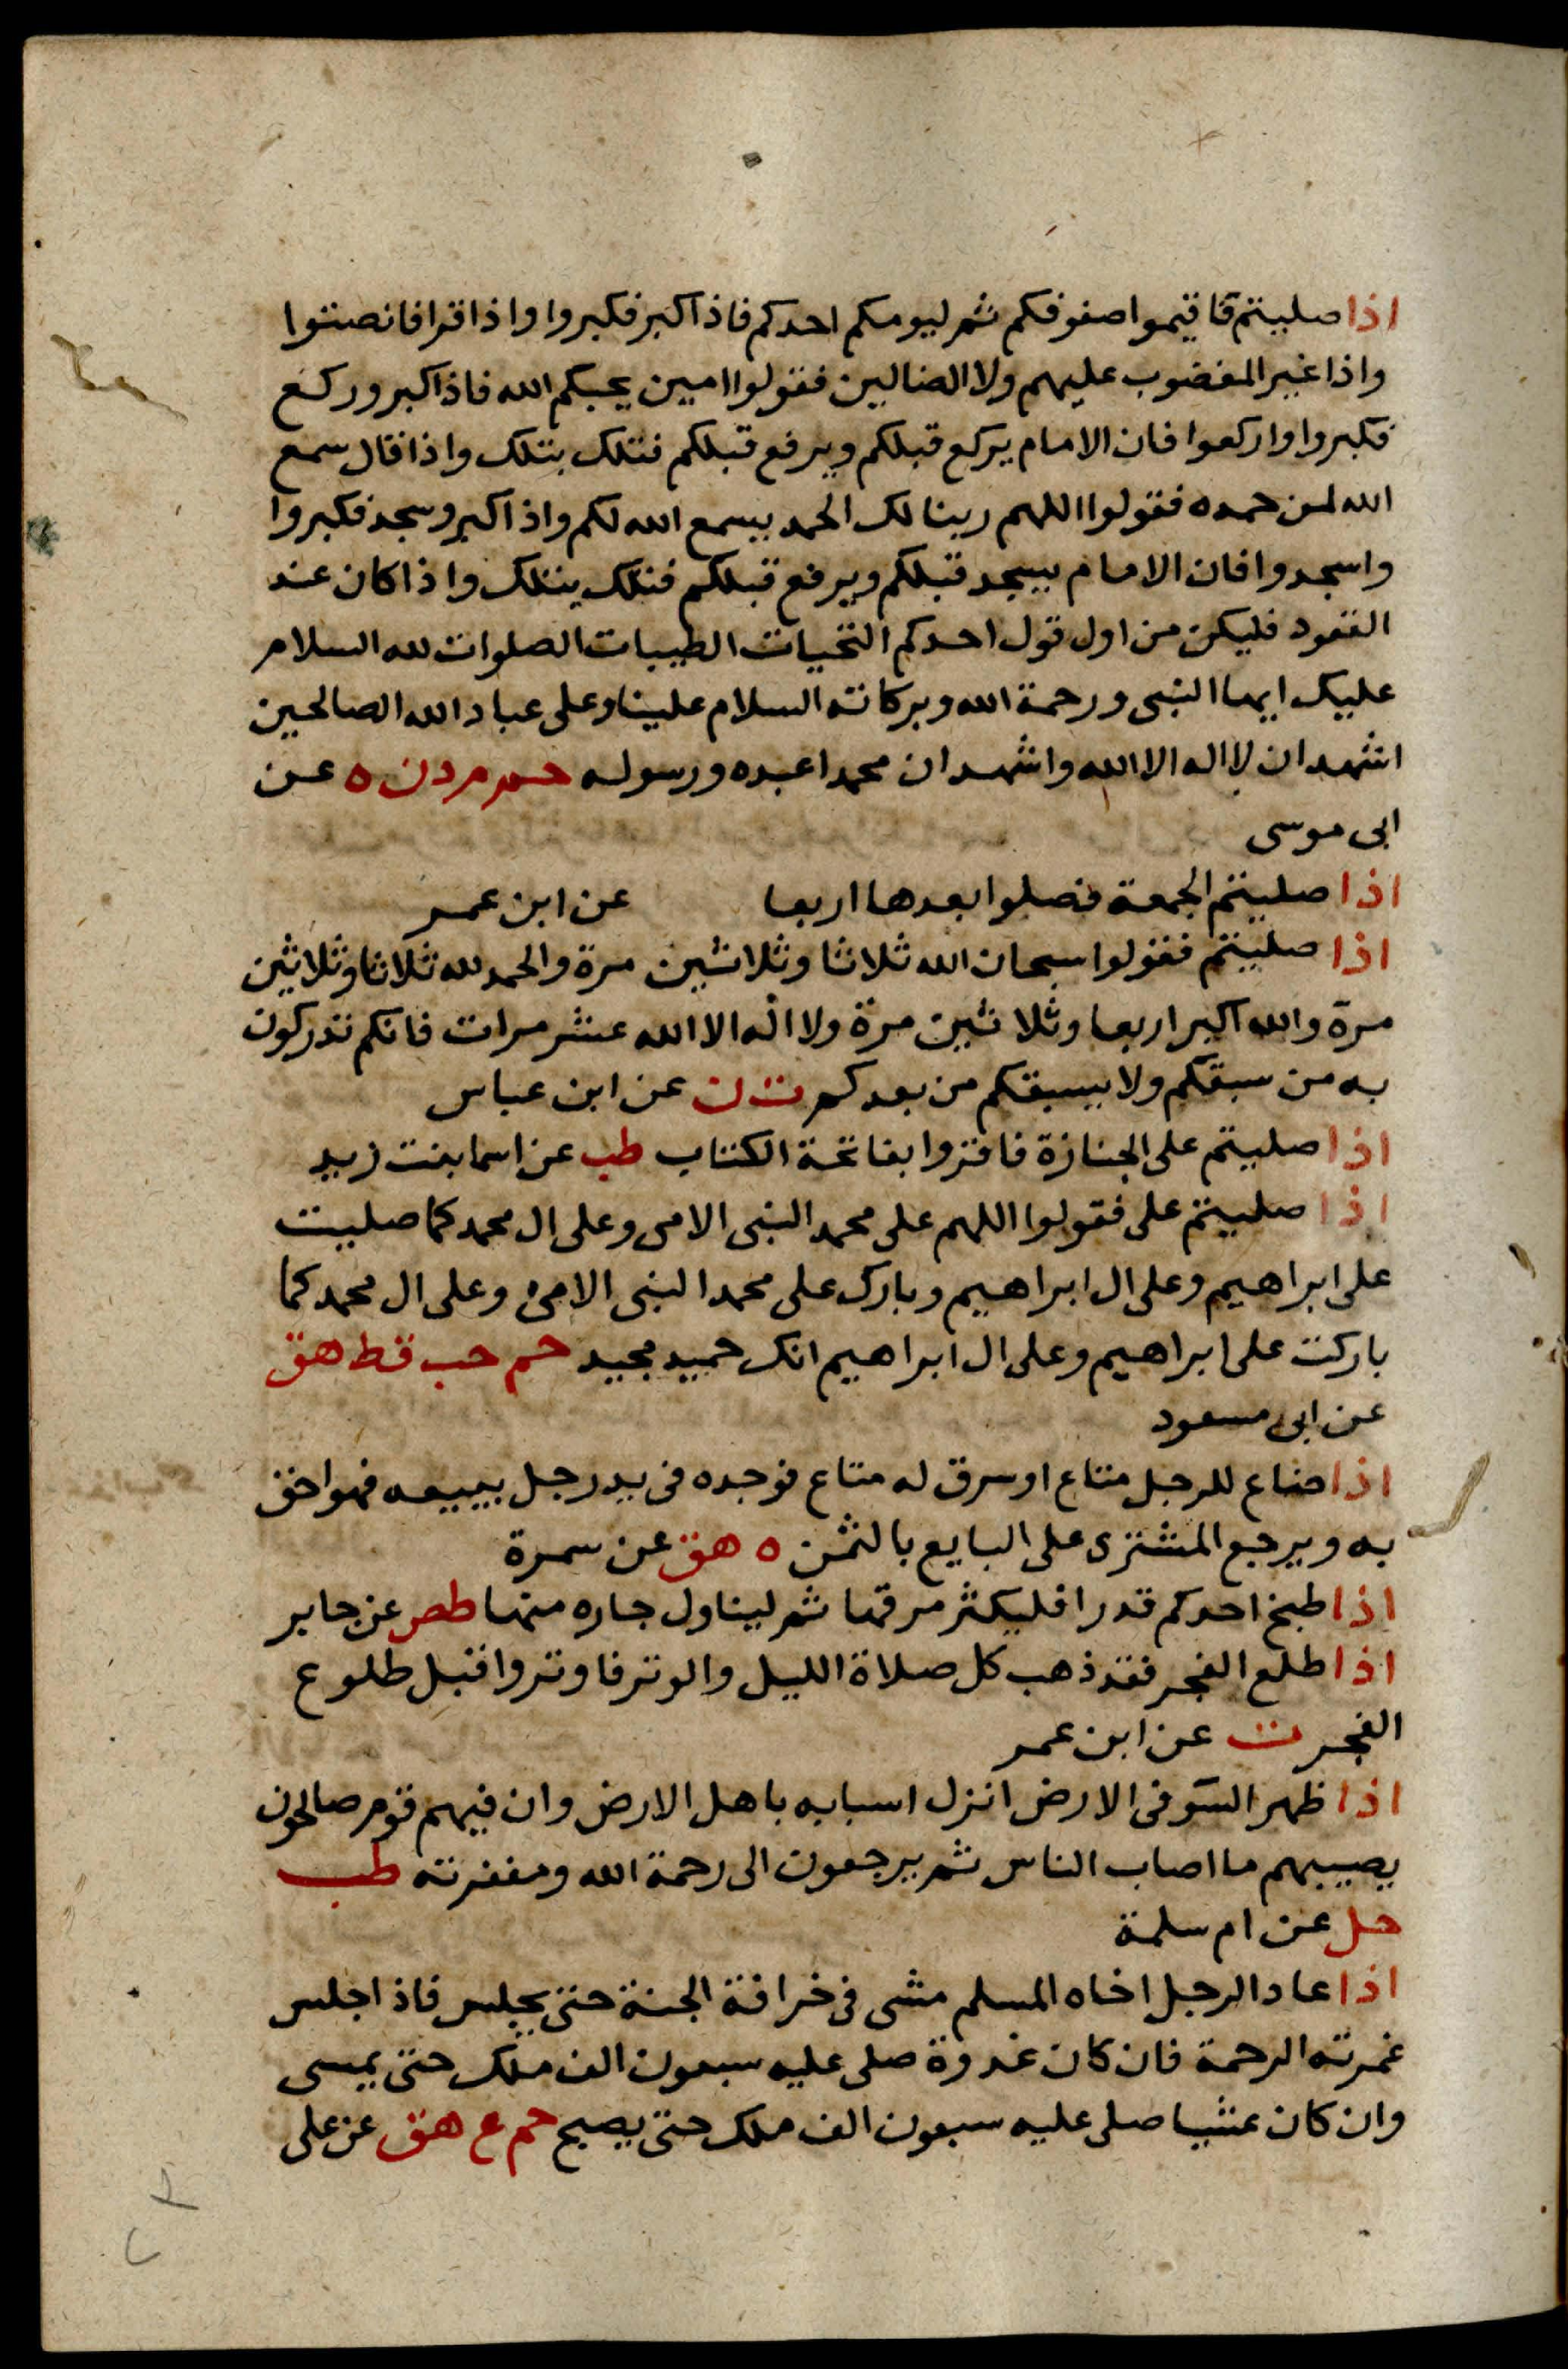 اذا صليتم فاقيموا صفوفكم ثم ليومكم احدكم فاذا كبر فكبروا واذا قرا فانصتوا
واذا غير المغضوب عليهم ولا الضالين فقولوا امين يحبكم الله فاذا كبر وركع
فكبروا واركعوا فان الامام يركع قبلكم ويرفع قبلكم فتلك بتلك واذا قال سمع
الله لمن حمده فقولوا اللهم ربنا لك الحمد يسمع الله لكم واذا كبر وسجد فكبروا
واسجدوا فان الامام يسجد قبلكم ويرفع قبلكم فتلك بتلك واذا كان عند
القعود فليكن من اول قول احدكم التحيات الطيبات الصلوات لله السلام
عليك ايها النبى ورحمة الله وبركاته السلام علينا وعلى عباد الله الصالحين
اشهد ان لا اله الا الله واشهد ان محمدا عبده ورسوله حم م د ن ه عن
ابى موسى
اذا صليتم الجمعة فصلوا بعدها اربعا عن ابن عمر
اذا صليتم فقولوا سبحان الله ثلاثا وثلاثين مرة والحمد لله ثلاثا وثلاثين
مرة والله اكبر اربعا وثلاثين مرة ولا اله الا الله عشر مرات فانكم تدركون
به من سبقكم ولا يسبقكم من بعدكم ت ن عن ابن عباس
اذا صليتم على الجنازة فاقروا بفاتحة الكتاب طب عن اسما بنت زيد
اذا صليتم على فقولوا اللهم على محمد النبى الامى وعلى ال محمد كما صليت
على ابراهيم وعلى ال ابراهيم وبارك على محمد النبى الامى وعلى ال محمد كما
باركت على ابراهيم وعلى ال ابراهيم انك حميد مجيد حم حب قط هق
عن ابى مسعود
اذا ضاع للرجل متاع او سرق له متاع فوجده فى يد رجل يبيعه فهو احق
به ويرجع المشترى على البايع بالثمن ه هق عن سمرة
اذا طبخ احدكم قدرا فليكثر مرقها ثم ليناول جاره منها طص عن جابر
اذا طلع الفجر فقد ذهب كل صلاة الليل والوتر فاوتروا قبل طلوع
الفجر ت عن ابن عمر
اذا ظهر السو فى الارض انزل اسبابه باهل الارض وان فيهم قوم صالحون
يصيبهم ما اصاب الناس ثم يرجعون الى رحمة الله ومغفرته طب
حل عن ام سلمة
اذا عاد الرجل اخاه المسلم مشى فى خرافة الجنة حتى يجلس فاذا جلس
غمرته الرحمة فان كان غدوة صلى عليه سبعون الف ملك حتى يمسى
وان كان عشيا صلى عليه سبعون الف ملك حتى يصبح حم ع هق عن على